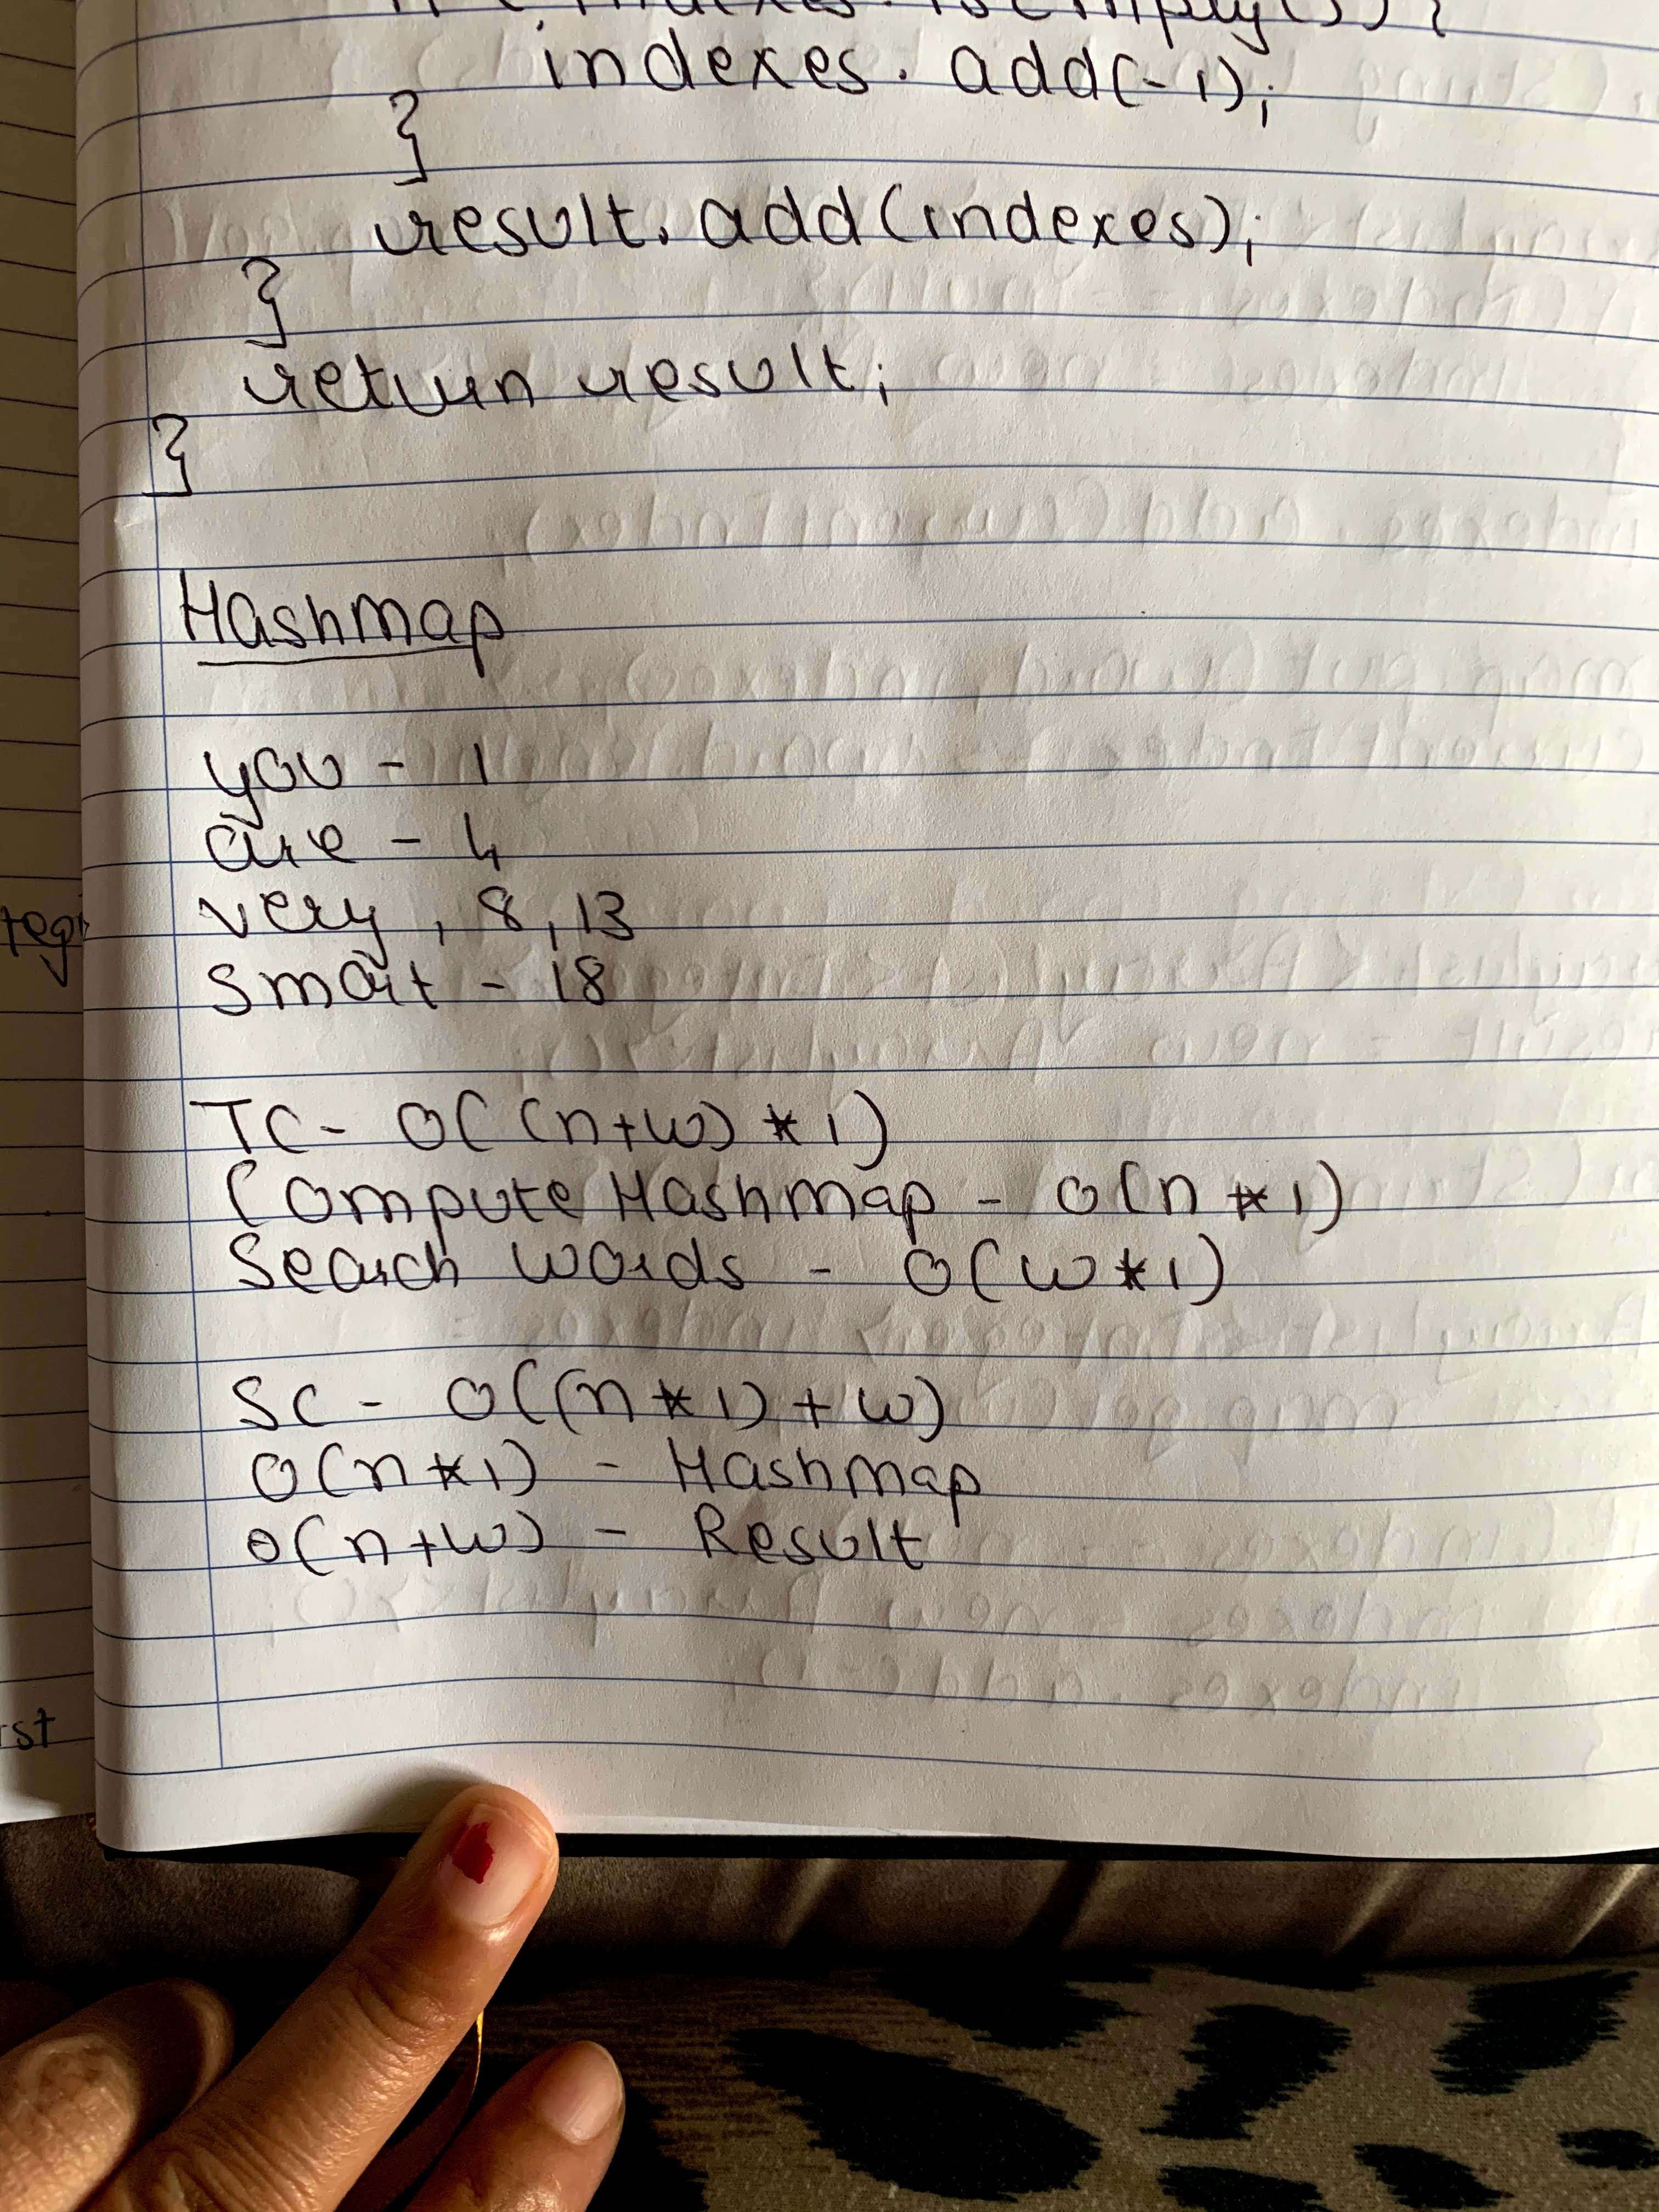 indexes.isEmpty()) {
indexes.add(-1);
}
result.add(indexes);
}
return result;
}
Hashmap
you - 1
are - 4
very , 8, 13
smart - 18
TC - O((n+w) * 1)
Compute Hashmap - O(n * 1)
Search words - O(w * 1)
SC - O((n * 1) + w)
O(n * 1) - Hashmap
O(n+w) - Result
rst